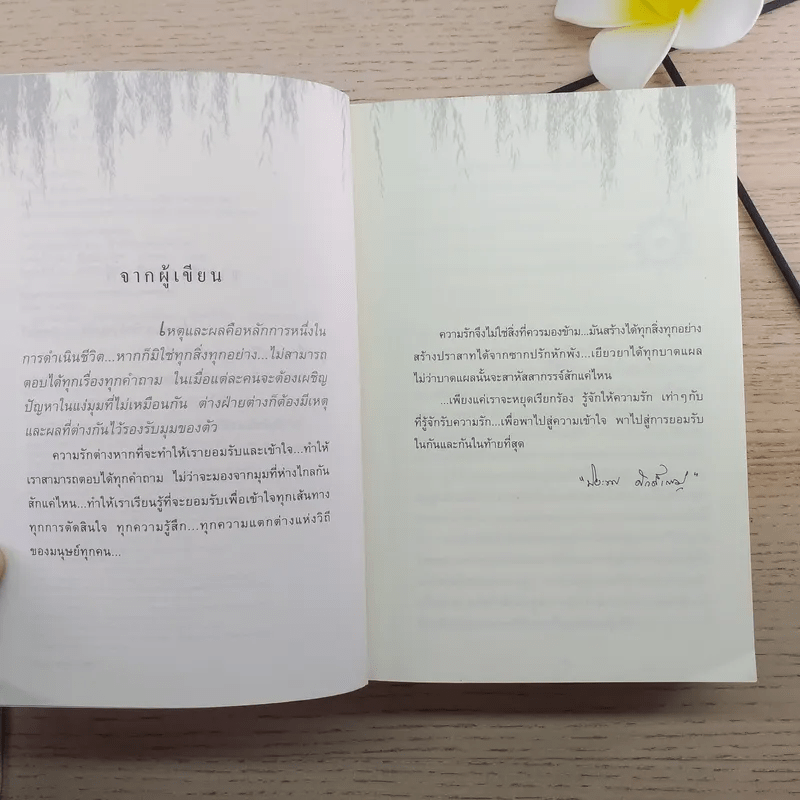 จากผู้เขียน
เหตุและผลคือหลักการหนึ่งใน
การดำเนินชีวิต...หากก็มิใช่ทุกสิ่งทุกอย่าง...ไม่สามารถ
ตอบได้ทุกเรื่องทุกคำถาม ในเมื่อแต่ละคนจะต้องเผชิญ
ปัญหาในแง่มุมที่ไม่เหมือนกัน ต่างฝ่ายต่างก็ต้องมีเหตุ
และผลที่ต่างกันไว้รองรับมุมของตัว
ความรักต่างหากที่จะทำให้เรายอมรับและเข้าใจ...ทำให้
เราสามารถตอบได้ทุกคำถาม ไม่ว่าจะมองจากมุมที่ห่างไกลกัน
สักแค่ไหน...ทำให้เราเรียนรู้ที่จะยอมรับเพื่อเข้าใจทุกเส้นทาง
ทุกการตัดสินใจ ทุกความรู้สึก...ทุกความแตกต่างแห่งวิถี
ของมนุษย์ทุกคน...
ความรักจึงไม่ใช่สิ่งที่ควรมองข้าม...มันสร้างได้ทุกสิ่งทุกอย่าง
สร้างปราสาทได้จากซากปรักหักพัง...เยียวยาได้ทุกบาดแผล
ไม่ว่าบาดแผลนั้นจะสาหัสสากรรจ์สักแค่ไหน
...เพียงแค่เราจะหยุดเรียกร้อง รู้จักให้ความรัก เท่าๆกับ
ที่รู้จักรับความรัก...เพื่อพาไปสู่ความเข้าใจ พาไปสู่การยอมรับ
ในกันและกันในท้ายที่สุด